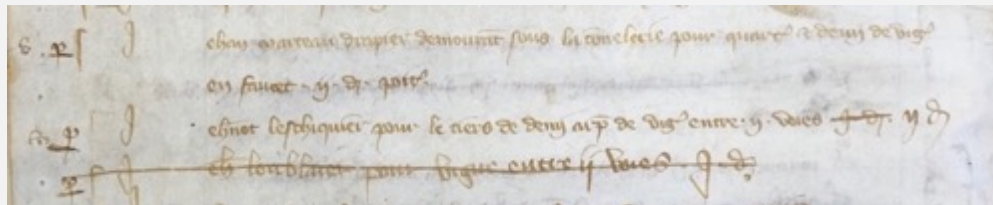 s . p jehan marteau drapier demourant sous la tonelerie pour quart et demi de vigne
en faucet . ij . d . poit.
p jehannot leschiquier pour le tiers de demi arp de vigne entre . ij . voies . j . d . ij d
p jeh loublaier pour vigne entre ij voies . j . d